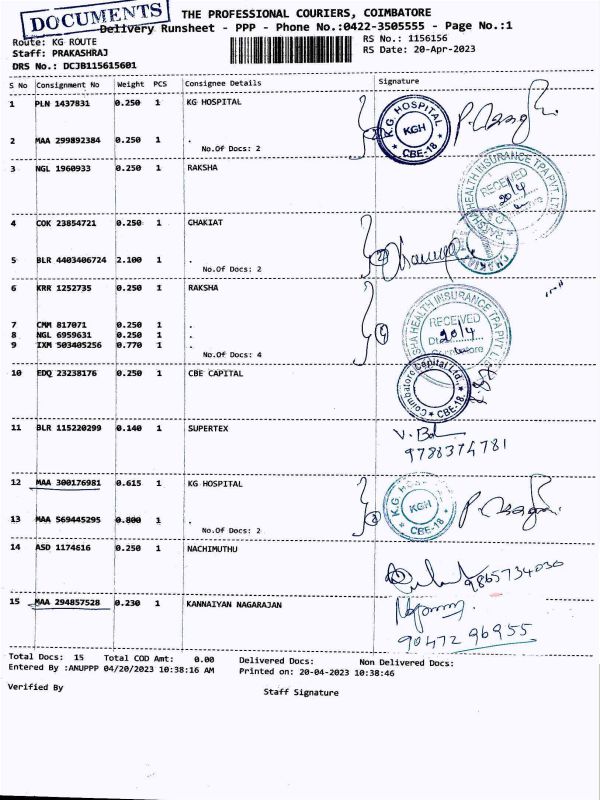 DOCUMENTS
THE PROFESSIONAL COURIERS, COIMBATORE
Delivery Runsheet - PPP - Phone No.:0422-3505555 - Page No.:1
Route: KG ROUTE RS No.: 1156156
Staff: PRAKASHRAJ RS Date: 20-Apr-2023
DRS No.: DCJB115615601
S No Consignment No Weight PCS Consignee Details Signature
1 PLN 1437831 0.250 1 KG HOSPITAL
K.G. HOSPITAL KGH CBE-18
2 MAA 299892384 0.250 1 .
No.Of Docs: 2
3 NGL 1960933 0.250 1 RAKSHA
RAKSHA HEALTH INSURANCE TPA PVT LTD RECEIVED 20/4
4 COK 23854721 0.250 1 CHAKIAT
CHAKIAT
5 BLR 4403406724 2.100 1 .
No.Of Docs: 2
6 KRR 1252735 0.250 1 RAKSHA
HEALTH INSURANCE TPA PVT LTD RECEIVED 20/4 Coimbatore
7 CMM 817071 0.250 1 .
8 NGL 6959631 0.250 1 .
9 IXM 503405256 0.770 1 .
No.Of Docs: 4
10 EDQ 23238176 0.250 1 CBE CAPITAL
Coimbatore Capital Ltd., CBE-18
11 BLR 115220299 0.140 1 SUPERTEX
9788374781
12 MAA 300176981 0.615 1 KG HOSPITAL
K.G. HOSPITAL KGH CBE-18
13 MAA 569445295 0.800 1 .
No.Of Docs: 2
14 ASD 1174616 0.250 1 NACHIMUTHU
9865734030
15 MAA 294857528 0.230 1 KANNAIYAN NAGARAJAN
90472 96955
Total Docs: 15 Total COD Amt: 0.00 Delivered Docs: Non Delivered Docs:
Entered By :ANUPPP 04/20/2023 10:38:16 AM Printed on: 20-04-2023 10:38:46
Verified By Staff Signature